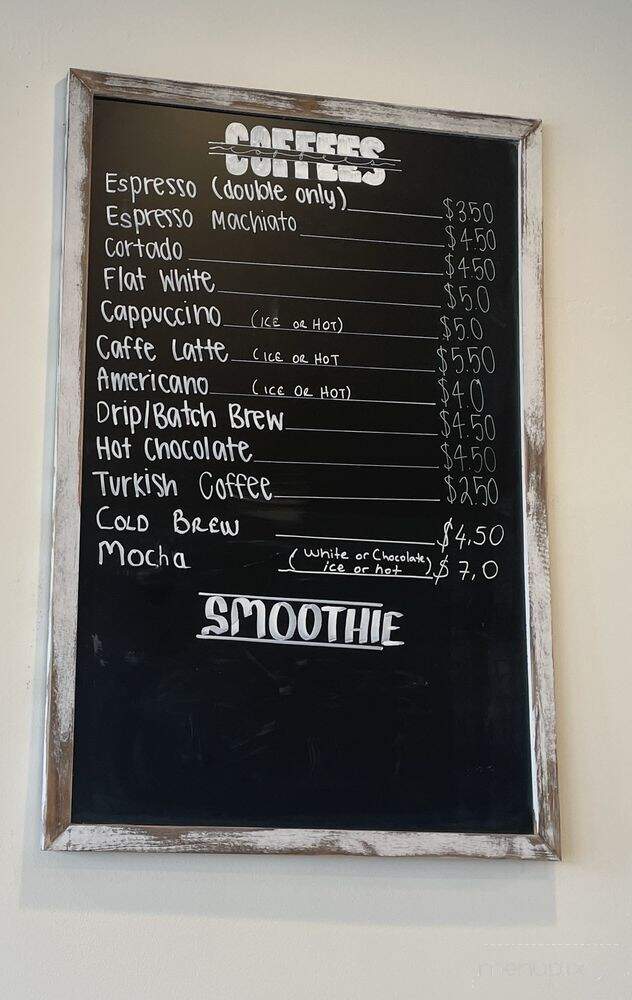 COFFEES
coffees
Espresso (double only) $3.50
Espresso Machiato $4.50
Cortado $4.50
Flat White $5.0
Cappuccino (ICE OR HOT) $5.0
Caffe Latte (ICE OR HOT $5.50
Americano (ICE OR HOT) $4.0
Drip/Batch Brew $4.50
Hot Chocolate $4.50
Turkish Coffee $2.50
COLD BREW $4.50
Mocha (White or Chocolate) $7.0
ice or hot
SMOOTHIE
menupix